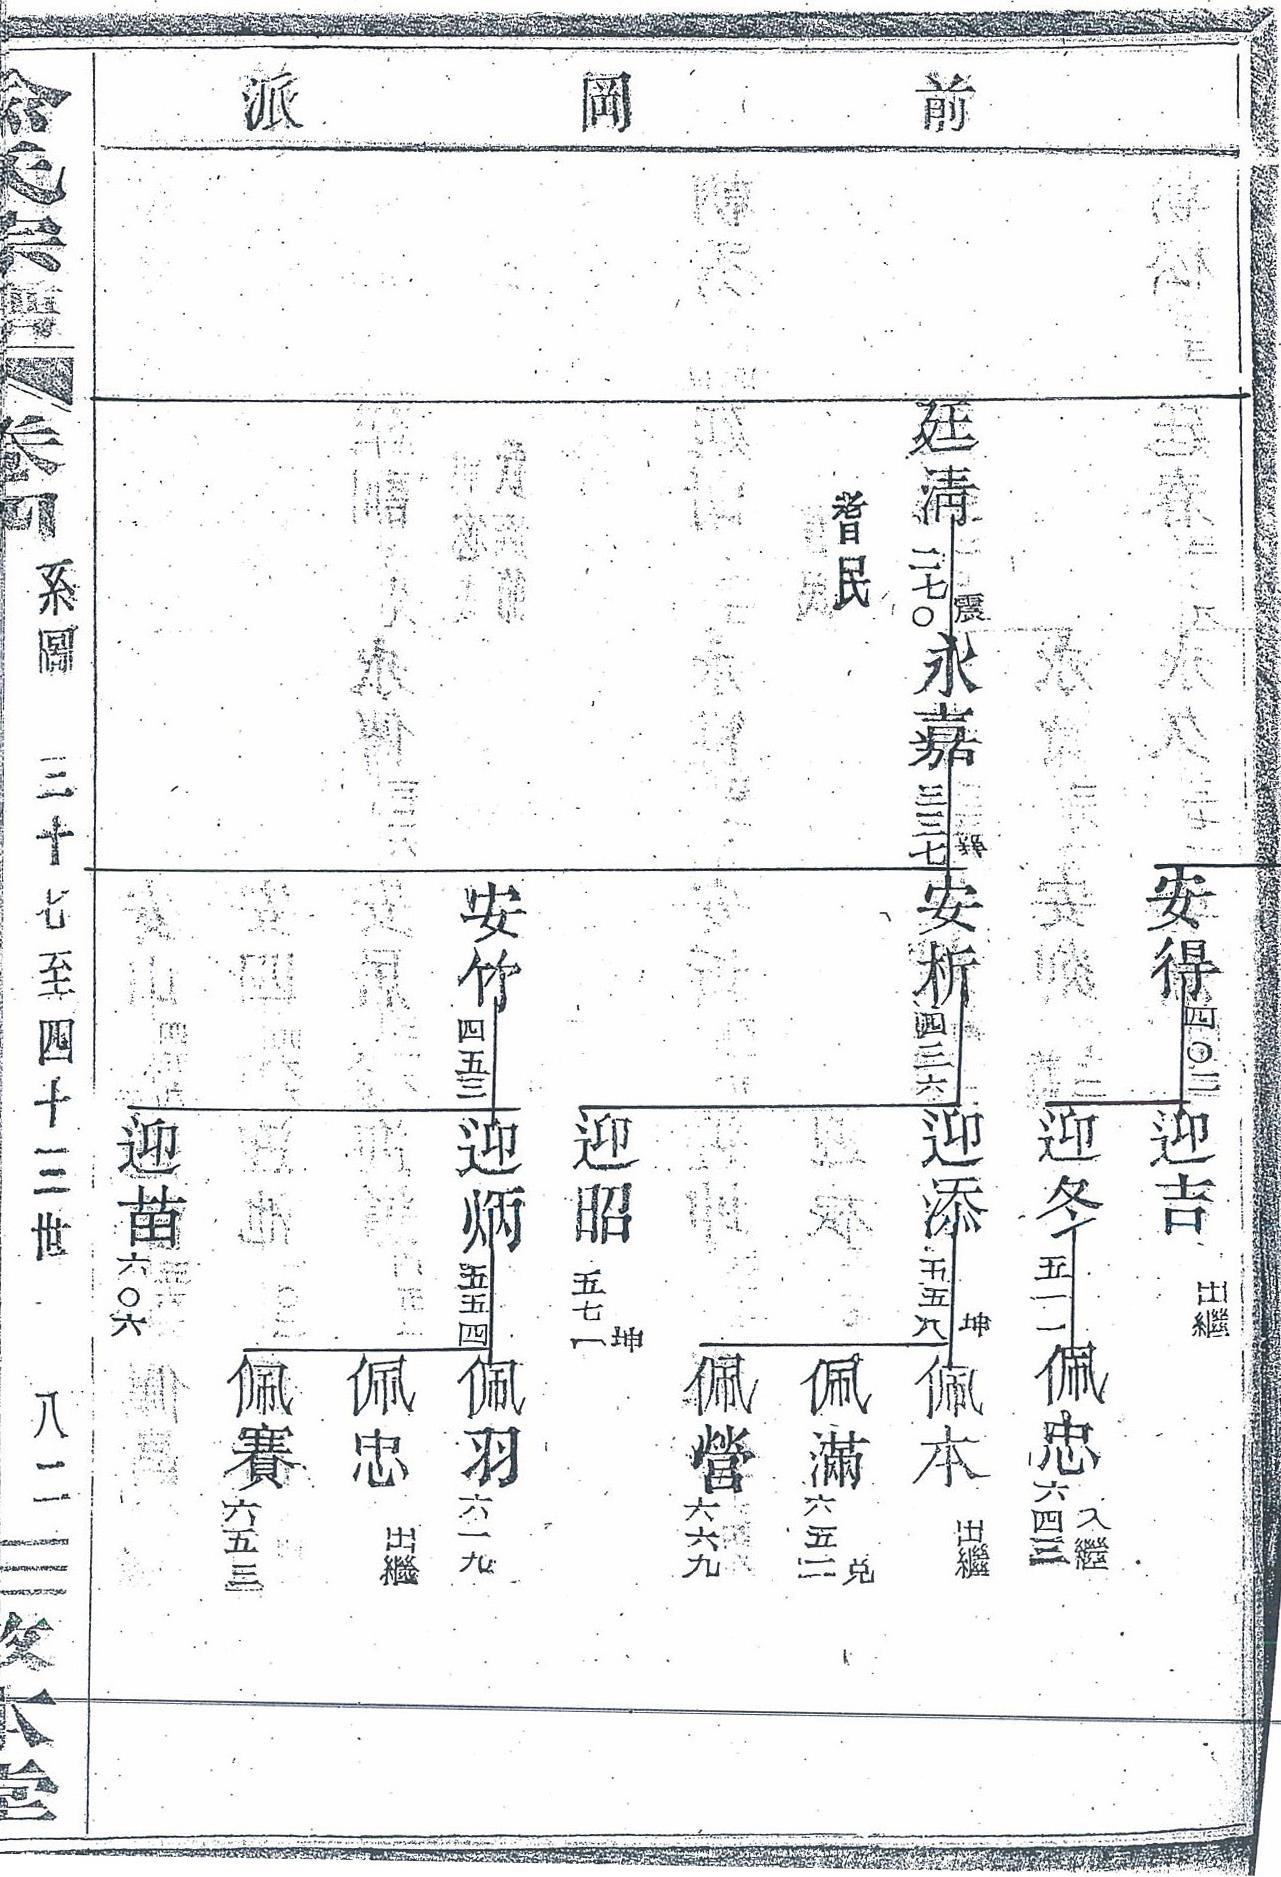 前岡派
安得 四〇三
迎吉 出繼
迎冬 五一一
佩忠 六四三 入繼
廷清 二七〇 震
耆民
永嘉 三三七 巽
安析 四三六
迎添 五五八 坤
佩本 出繼
佩滿 六五二 兌
佩營 六六九
迎昭 五七一 坤
安竹 四五三
迎炳 五五四
佩羽 六一九
佩忠 出繼
佩賽 六五三
迎苗 六〇六
氏宗譜 卷四 系圖 三十七至四十三世 八二 本堂